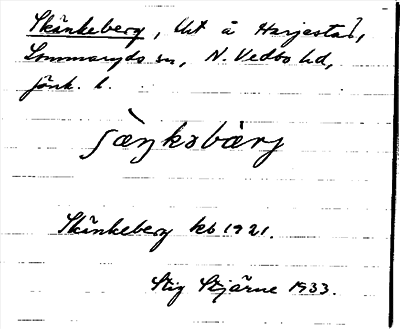 Skänkeberg, Ut å Harjestad,
Lommaryds sn, N. Vedbo hd,
Jönk. l.
ʃæŋkəbærj
Skänkeberg kb 1921.
Stig Stjärne 1933.